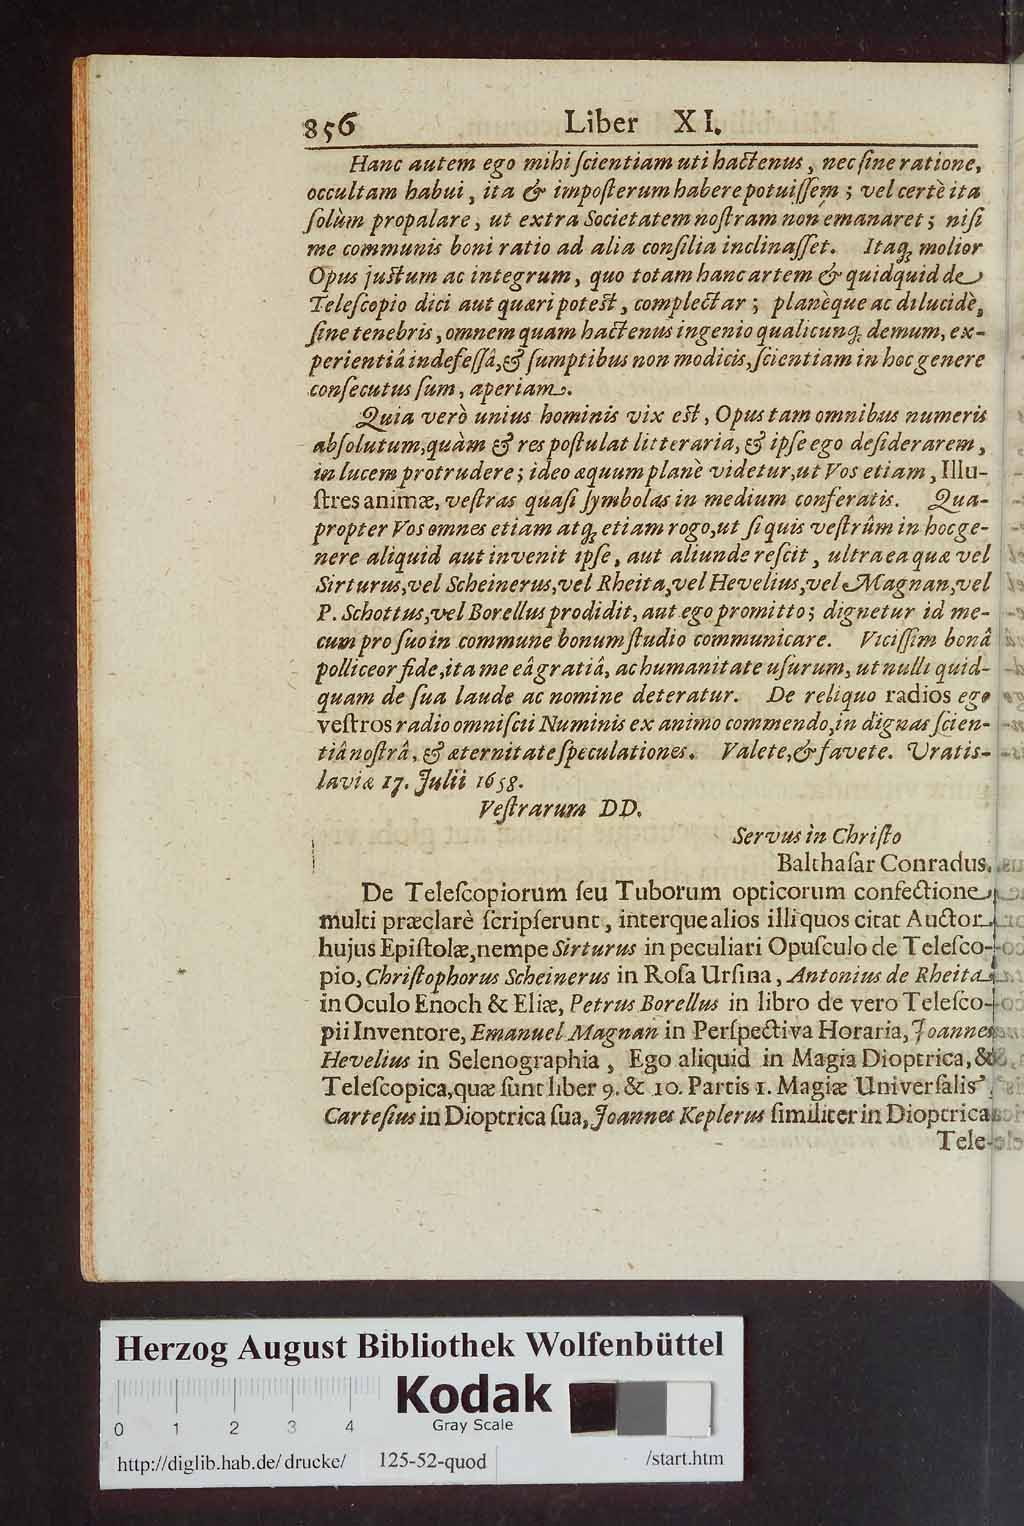 856 Liber XI.
Hanc autem ego mihi ſcientiam uti hactenus, nec ſine ratione,
occultam habui, ita & impoſterum habere potuiſſem; vel certè ita
ſolùm propalare, ut extra Societatem noſtram non emanaret; niſi
me communis boni ratio ad alia conſilia inclinaſſet. Itaq; molior
Opus juſtum ac integrum, quo totam hanc artem & quidquid de
Teleſcopio dici aut quæri poteſt, complectar; planèque ac dilucidè,
ſine tenebris, omnem quam hactenus ingenio qualicunq; demum, ex-
perientiâ indefeſſâ, & ſumptibus non modicis, ſcientiam in hoc genere
conſecutus ſum, aperiam.
Quia verò unius hominis vix eſt, Opus tam omnibus numeris
abſolutum, quàm & res poſtulat litteraria, & ipſe ego deſiderarem,
in lucem protrudere; ideo æquum planè videtur, ut Vos etiam, Illu-
ſtres animæ, veſtras quaſi ſymbolas in medium conferatis. Qua-
propter Vos omnes etiam atq; etiam rogo, ut ſi quis veſtrûm in hoc ge-
nere aliquid aut invenit ipſe, aut aliunde reſcit, ultra ea quæ vel
Sirturus, vel Scheinerus, vel Rheita, vel Hevelius, vel Magnan, vel
P. Schottus, vel Borellus prodidit, aut ego promitto; dignetur id me-
cum pro ſuo in commune bonum ſtudio communicare. Viciſſim bonâ
polliceor fide, ita me eâ gratiâ, ac humanitate uſurum, ut nulli quid-
quam de ſua laude ac nomine deteratur. De reliquo radios ego
veſtros radio omniſcii Numinis ex animo commendo, in dignas ſcien-
tiâ noſtrâ, & æternitate ſpeculationes. Valete, & favete. Vratis-
laviæ 17. Julii 1658.
Veſtrarum DD.
Servus in Chriſto
Balthaſar Conradus.
De Teleſcopiorum ſeu Tuborum opticorum confectione
multi præclarè ſcripſerunt, interque alios illi quos citat Auctor
hujus Epiſtolæ, nempe Sirturus in peculiari Opuſculo de Teleſco-
pio, Chriſtophorus Scheinerus in Roſa Urſina, Antonius de Rheita
in Oculo Enoch & Eliæ, Petrus Borellus in libro de vero Teleſco-
pii Inventore, Emanuel Magnan in Perſpectiva Horaria, Joannes
Hevelius in Selenographia, Ego aliquid in Magia Dioptrica, &
Teleſcopica, quæ ſunt liber 9. & 10. Partis 1. Magiæ Univerſalis,
Carteſius in Dioptrica ſua, Joannes Keplerus ſimiliter in Dioptrica
Tele-
Herzog August Bibliothek Wolfenbüttel
Kodak
Gray Scale
0 1 2 3 4
http://diglib.hab.de/drucke/ 125-52-quod /start.htm